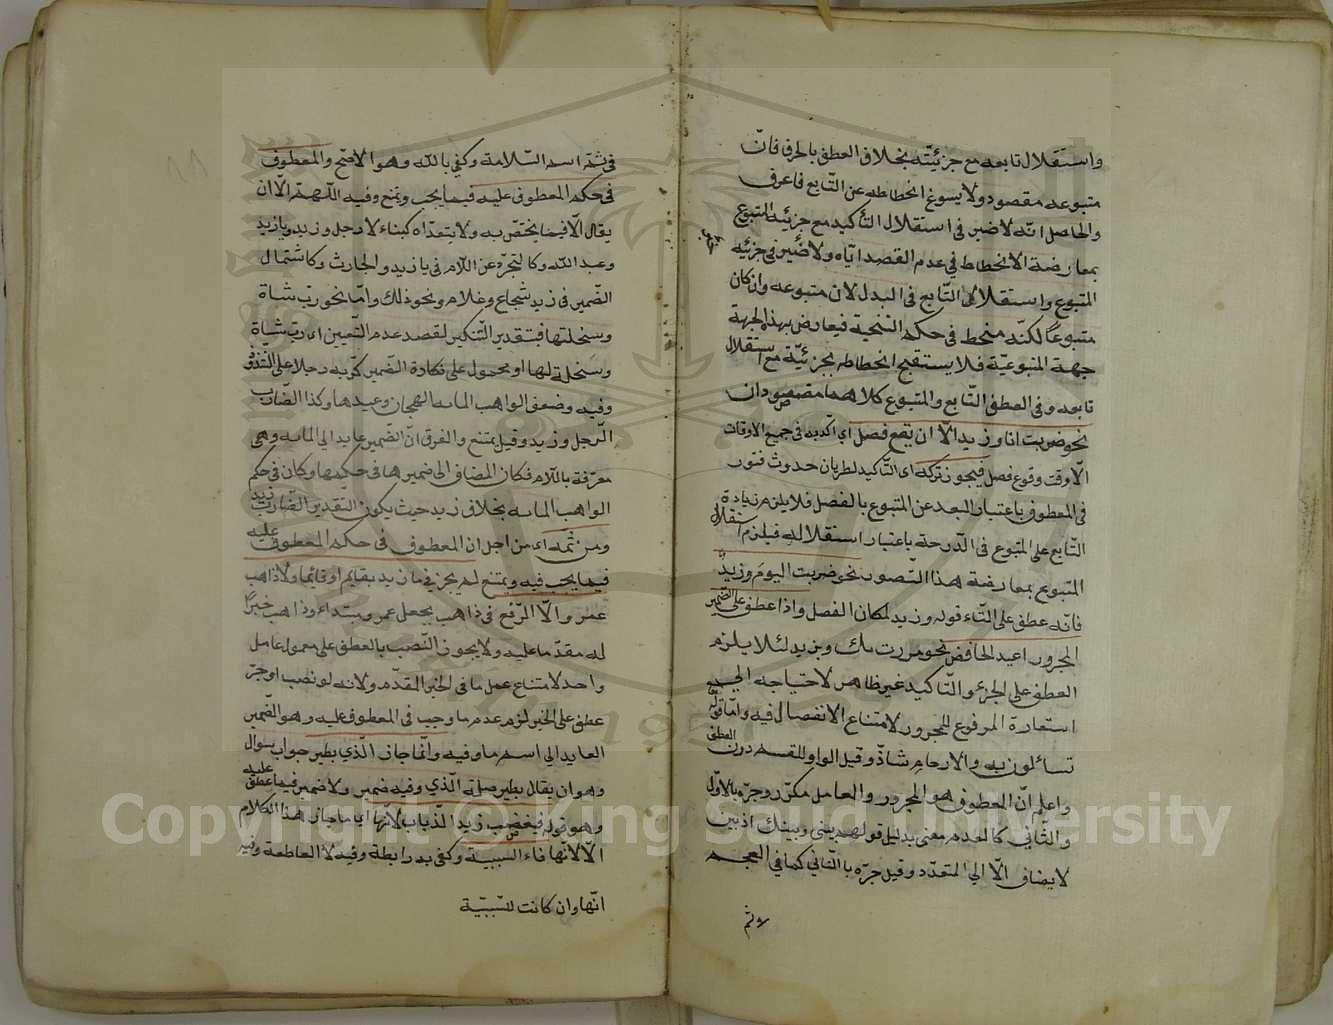 واستقلال تابعه مع جزئيته بخلاف العطف بالحرف فانّ
متبوعه مقصود ولا يسوغ انحطاطه عن التّابع فاعرف
والحاصل انّه لا ضير في استقلال التأكيد مع جزئية المتبوع
بمعارضة الانحطاط في عدم القصد ايّاه ولا ضير في جزئية
المتبوع واستقلال التّابع في البدل لان متبوعه وان كان
متبوعاً لكنّه منحط في حكم التنحية فيعارض بهذا الجهة
جهة المتبوعيّة فلا يستقبح انحطاطه بجزئيّة مع استقلال
تابعه وفي العطف التّابع والمتبوع كلاهما مقصودان
نحو ضربت انا وزيد الا ان يقع فصل اي اكّد به في جميع الاوقات
الّا وقت وقوع فصل فيجوز تركه اي التّأكيد لطريان حدوث فتور
في المعطوف باعتبار البعد عن المتبوع بالفصل فلا يلزم زيادة
التّابع على المتبوع في الدّرجة باعتبار استقلاله فيلزم استقلال
المتبوع بمعارضة هذا التّصور نحو ضربت اليوم وزيدٌ
فانّه عطف على التّاء قوله وزيد لمكان الفصل واذا عطف على الضّمير
المجرور اعيد الخافض نحو مررت بك وبزيد لئلا يلزم
العطف على الجزء والتّاكيد غير ظاهر لاحتياجه الى
استعارة المرفوع للمجرور لامتناع الانفصال فيه وامّا قوله
تساءلون به والارحام شاذّ وقيل الواو للقسم دون العطف
واعلم انّ المعطوف هو المجرور والعامل مكرّر وجرّه بالاوّل
والثّاني كالعدم معنى بدليل قولهم بيني وبينك اذ بين
لا يضاف الّا الى المتعدّد وقيل جرّه بالثّاني كما في
في ثمّه اسم السّلامة وكفى بالله وهو الاصحّ والمعطوف
في حكم المعطوف عليه فيما يجب ويمتنع وفيه اللّهمّ الّا ان
يقال الّا فيما يختصّ به ولا يتعدّاه كبناء لا رجل وزيد ويا زيد
وعبد اللّه وكالتجرّد عن اللّام في يا زيد والحارث وكاشتمال
الضّمير في زيد شجاع وغلام ونحو ذلك وامّا نحو ربّ شاة
وسخلتها فبتقدير التّنكير لقصد عدم التّعيين اي ربّ شاة
وسخلة لها او محمول على نكارة الضّمير كربّه رجلا على الشّذوذ
وفيه وضعف الواهب المائة الهجان وعبدها وكذا الضّارب
الرّجل وزيد وقيل يمتنع والفرق انّ الضّمير عايد الى المائة وهي
معرّفة باللّام فكان المضاف الى ضميرها في حكمها وكان في حكم
الواهب المائة بخلاف زيد حيث يكون التّقدير الضّارب زيد
ومن ثمّه اي من اجل ان المعطوف في حكم المعطوف عليه
فيما يجب فيه ويمتنع لم يجز في ما زيد بقايم او قائما ولا ذاهب
عمرو الّا الرّفع في ذاهب بجعل عمرو مبتداء وذاهب خبراً
له مقدّما عليه ولا يجوز النّصب بالعطف على معمول عامل
واحد لامتناع عمل ما في الخبر المقدّم ولانه لو نصب او جرّ
عطف على الخبر لزم عدم ما وجب في المعطوف عليه وهو الضّمير
العايد الى اسم ما وفيه وانّما جاز الّذي يطير جواب سوال
وهو ان يقال يطير صلة الّذي وفيه ضمير ولا ضمير فيما عطف عليه
وهو قوله فيغضب زيد الذّباب لانّها اي ما جاز هذا الكلام
الّا لانها فاء السببية وكفى به رابطة وفيه لا العاطفة وفيه
انّها وان كانت للسّببيّة
Copyright © King Saud University
1957